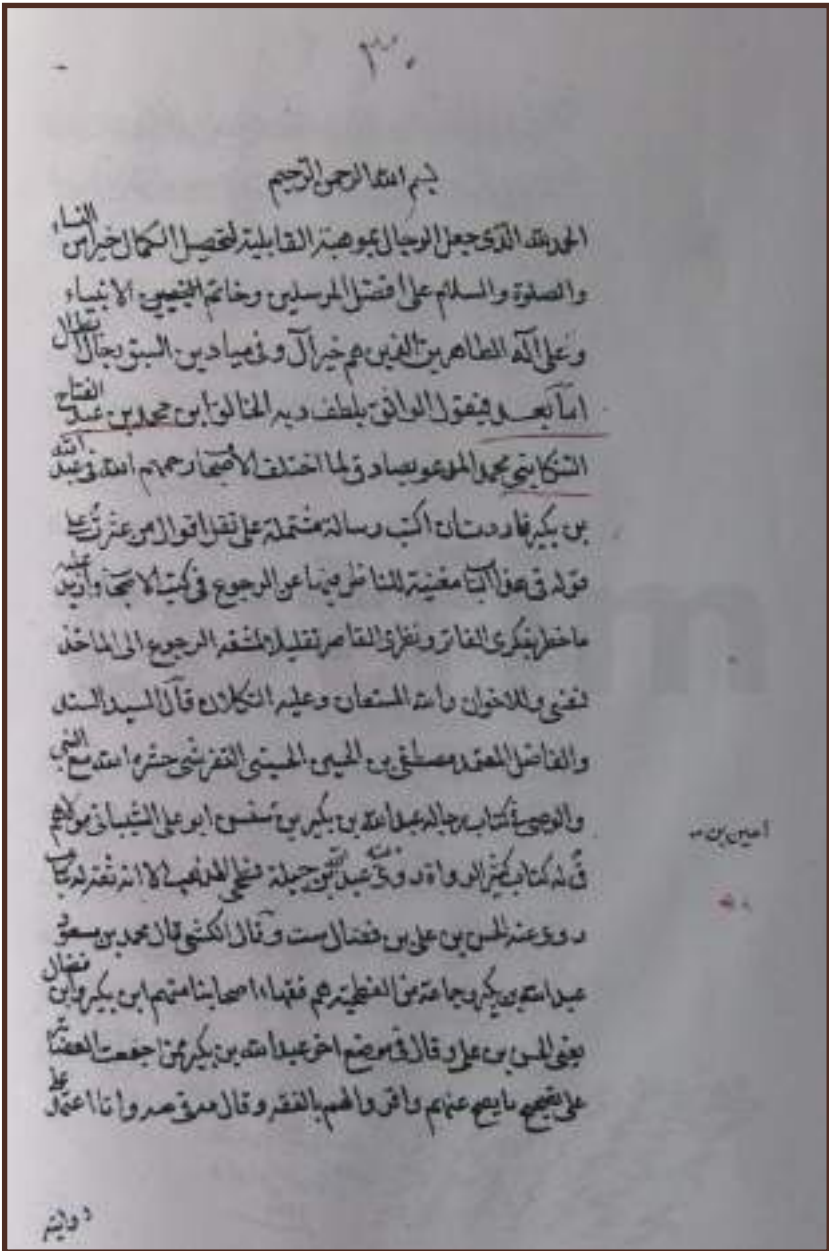 ٣٠
بسم الله الرحمن الرحيم
الحمد لله الذی جعل الرجال بموهبة القابلية لتحصيل الكمال خيرا من النساء
والصلوة والسلام على افضل المرسلين وخاتم الانبياء
وعلى آله الطاهرين الذين هم خير آل وفی ميادين السبق رجال ابطال
اما بعد فيقول الواثق بلطف ربه الخالق ابن محمد بن عبد الفتاح
التنكابنی محمد المدعو بصادق لما اختلف الأصحاب رحمهم الله فی عبد الله
بن بكير فاردت ان اكتب رسالة مشتملة على نقل اقوال من عثرت على
قوله فی هذا الباب مغنية للناظر فيها عن الرجوع فی كتب الاصحاب وازيد عليه
ما خطر بفكری الفاتر ونظری القاصر تقليلا لمشقة الرجوع الى الماخذ
لنفسی وللاخوان والله المستعان وعليه التكلان قال السيد السند
والفاضل المعتمد مصطفى بن الحسين الحسينی التفرشی حشره الله مع النبی
والوصی فی كتاب رجاله عبد الله بن بكير بن ابو علی الشيبانی مولاهم
ق له كتاب كثير الرواة روى عنه عبد الله بن جبلة فطحی المذهب الا انه ثقة له كتاب
روى عنه الحسن بن علی بن فضال ست وقال الكشی قال محمد بن مسعود
عبد الله بن بكير وجماعة من الفطحية هم فقهاء اصحابنا منهم ابن بكير وابن فضال
يعنی الحسن بن علی وقال فی موضع اخر عبد الله بن بكير ممن اجمعت العصابة
على تصحيح ما يصح عنهم واقروا لهم بالفقه وقال مه فی صه وانا اعتمد على
روايته
اعين بن